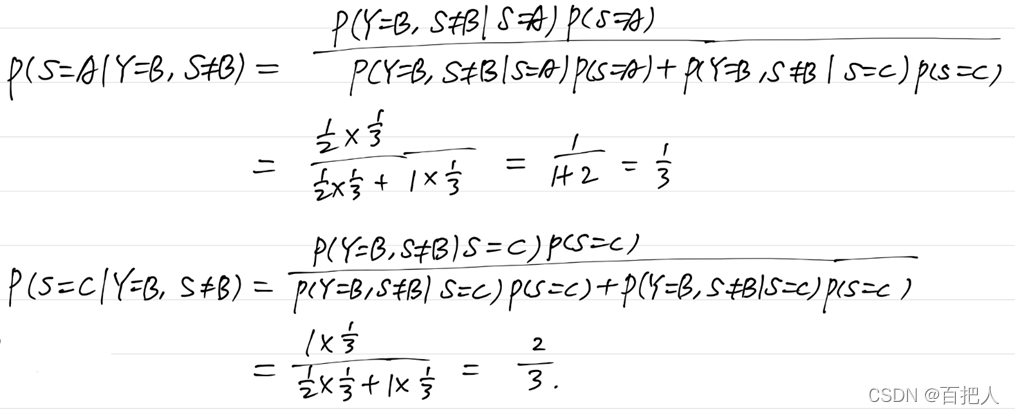 P(Y=B, S≠B | S=A) P(S=A)
P(S=A | Y=B, S≠B) = 
P(Y=B, S≠B | S=A) P(S=A) + P(Y=B, S≠B | S=C) P(S=C)
= (1/2 × 1/3) / (1/2 × 1/3 + 1 × 1/3) = 1/(1+2) = 1/3
P(Y=B, S≠B | S=C) P(S=C)
P(S=C | Y=B, S≠B) = 
P(Y=B, S≠B | S=C) P(S=C) + P(Y=B, S≠B | S=C) P(S=C)
= (1 × 1/3) / (1/2 × 1/3 + 1 × 1/3) = 2/3.
CSDN @百把人